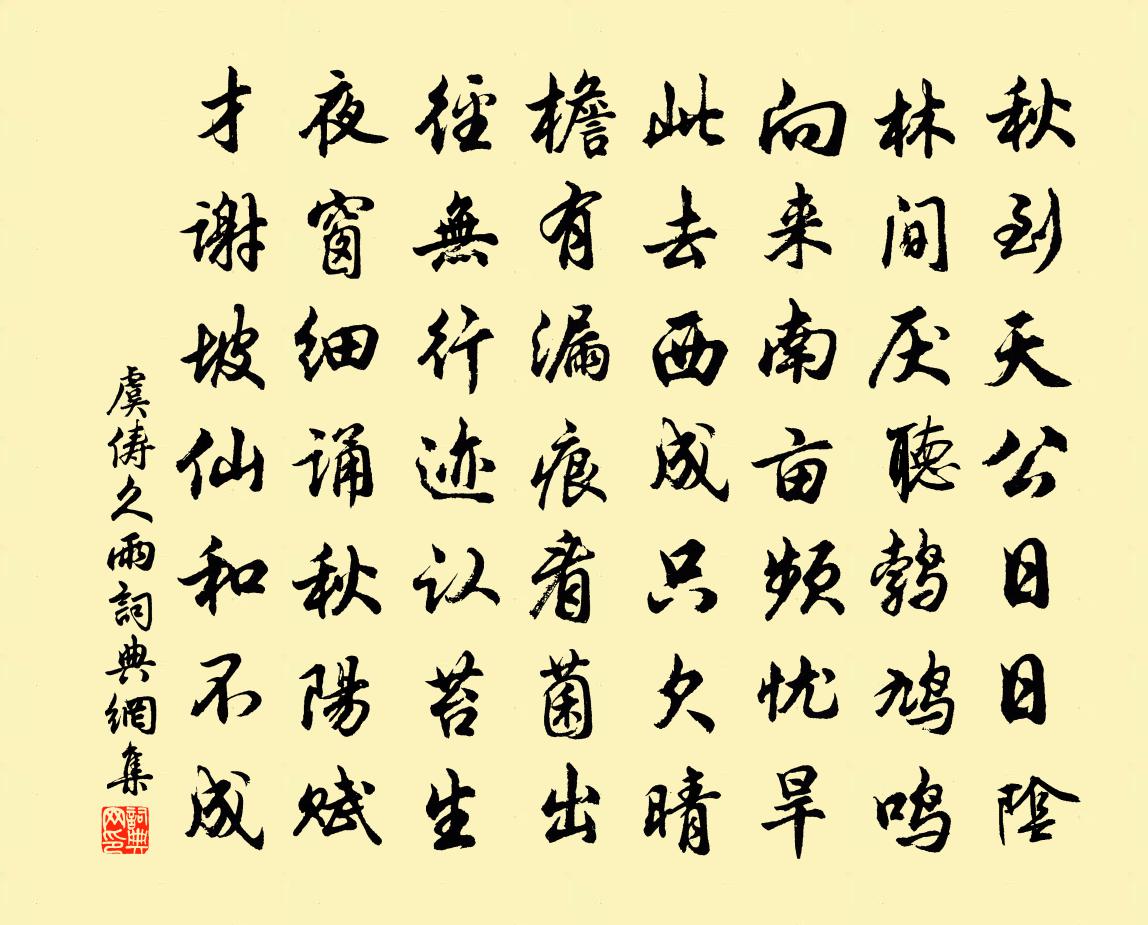 秋到天公日日陰
林间厌聽鹁鳩鳴
向来南亩频忧旱
此去西成只欠晴
檐有漏痕看菌出
徑無行迹认苔生
夜窗细诵秋陽赋
才谢坡仙和不成
虞俦久雨詞典網集
詞典网印